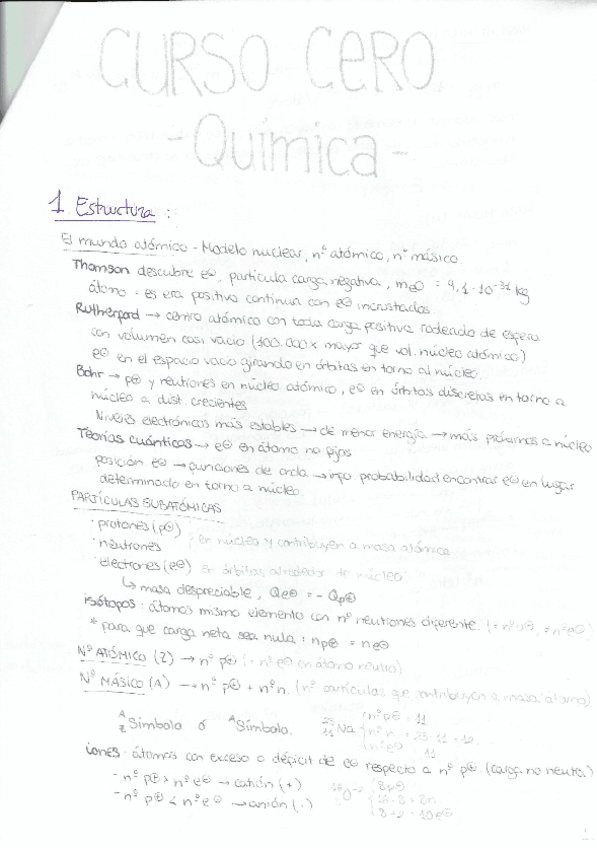 CURSO CERO
- Química -
1. Estructura :
El mundo atómico - Modelo nuclear, nº atómico, nº másico
Thomson descubre e⊖, partícula carga negativa, me⊖ = 9,1·10⁻³¹ kg
átomo = esfera positiva continua con e⊖ incrustados
Rutherford → centro atómico con toda carga positiva rodeado de esfera
con volumen casi vacío (100.000x mayor que vol. núcleo atómico)
e⊖ en el espacio vacío girando en órbitas en torno al núcleo.
Bohr → p⊕ y neutrones en núcleo atómico, e⊖ en órbitas discretas en torno a
núcleo a dist. crecientes
Niveles electrónicos más estables → de menor energía → más próximos a núcleo
Teorías cuánticas → e⊖ en átomo no fijos
posición e⊖ → funciones de onda → info probabilidad encontrar e⊖ en lugar
determinado en torno a núcleo.
PARTÍCULAS SUBATÓMICAS
· protones (p⊕)
· neutrones } en núcleo y contribuyen a masa atómica
· electrones (e⊖) en órbitas alrededor de núcleo
↳ masa despreciable, Qe⊖ = - Qp⊕
isótopos : átomos mismo elemento con nº neutrones diferente. (= nº p⊕, = nº e⊖)
* para que carga neta sea nula : np⊕ = ne⊖
Nº ATÓMICO (Z) → nº p⊕ (= nº e⊖ en átomo neutro)
Nº MÁSICO (A) → nº p⊕ + nº n. (nº partículas que contribuyen a masa átomo)
ᴬ_Z Símbolo ó ᴬSímbolo. ²³₁₁Na { nº p⊕ = 11
nº n = 23 - 11 = 12
nº e⊖ = 11
iones : átomos con exceso o déficit de e⊖ respecto a nº p⊕. (carga no neutra)
- nº p⊕ > nº e⊖ → catión (+)
- nº p⊕ < nº e⊖ → anión (-)
¹⁶O²⁻ { 8p⊕
16 - 8 = 8n
8 + 2 = 10e⊖